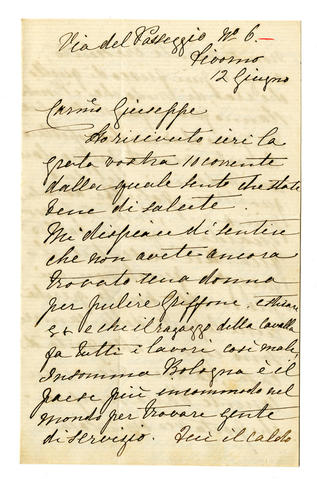 Via del Passeggio Nº 6.
Livorno
12 Giugno
Carmo Giuseppe
Ho ricevuto ieri la
grata vostra 10 corrente
dalla quale sento che state
bene di salute.
Mi dispiace di sentire
che non avete ancora
trovato una donna
per pulire Griffone,
e che il ragazzo della cavalla
fa tutti i lavori così male,
Insomma Bologna è il
paese più incommodo nel
mondo per trovare gente
di servizio. Qui il caldo